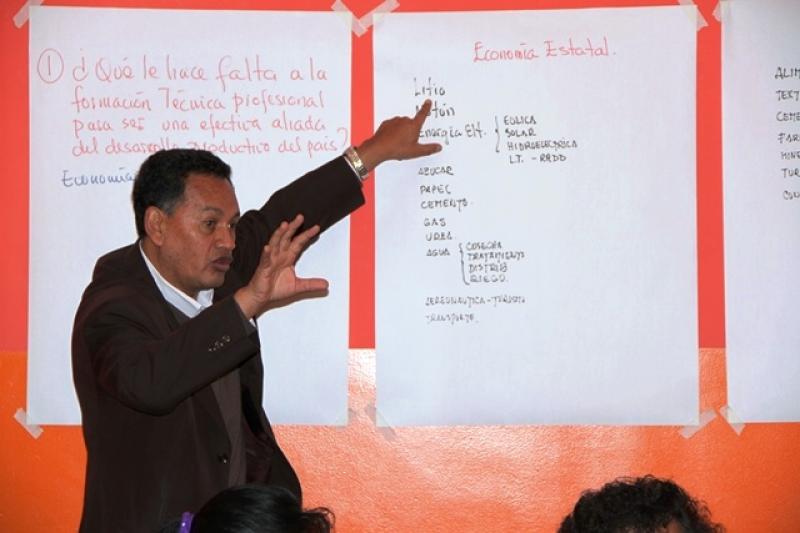 1 ¿Qué le hace falta a la
formación Técnica profesional
para ser una efectiva aliada
del desarrollo productivo del país?
Economía
Economía Estatal.
Litio
Energía Elt.
EOLICA
SOLAR
HIDROELECTRICA
LT. - RRDD
AZUCAR
PAPEL
CEMENTO.
GAS
UREA
AGUA
COSECHA
TRATAMIENTO
DISTRIB
RIEGO.
AERONAUTICA - TURISMO
TRANSPORTE.
ALIM
TEXT
CEME
MINE
TUR